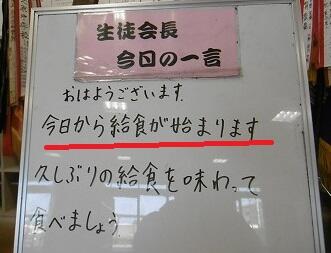 生徒会長
今日の一言
おはようございます。
今日から給食が始まります
久しぶりの給食を味わって
食べましょう。